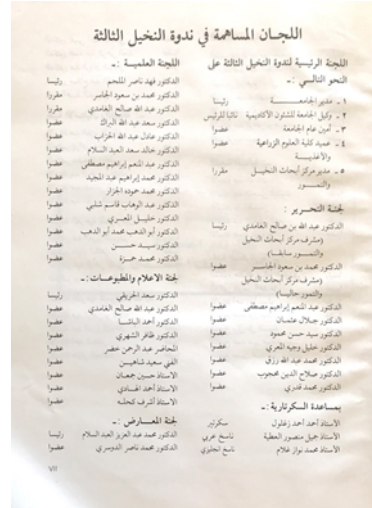 اللجـان المساهمة في ندوة النخيل الثالثة
اللجنة الرئيسية لندوة النخيل الثالثة على
النحو التالـــي :ـ
١ ـ مدير الجامعـــــة رئيسا
٢ ـ وكيل الجامعة للشئون الأكاديمية نائبا للرئيس
٣ ـ أمين عام الجامعة عضوا
٤ ـ عميد كلية العلوم الزراعية عضوا
والأغذيـــة
٥ ـ مدير مركز أبحاث النخيـل مقررا
والتمــــور
لجنـة التحريــر :
الدكتور عبد الله بن صالح الغامدي رئيسا
(مشرف مركز أبحاث النخيل
والتمــور سابقـا)
الدكتور محمد بن سعود الجاسـر عضوا
(مشرف مركز أبحاث النخيل
والتمور حاليـا)
الدكتور عبد المنعم إبراهيم مصطفى عضوا
الدكتور جـلال عثمـان عضوا
الدكتور سيد حسن محمود عضوا
الدكتور خليل وجيه المعري عضوا
الدكتور محمد عبد الله رزق عضوا
الدكتور صلاح الدين محجوب عضوا
الدكتور محمد قدري عضوا
بمساعدة السكرتارية :ـ
الأستاذ أحمد أحمد زغلول سكرتير
الأستاذ جميل منصور العطية ناسخ عربي
الأستاذ محمد نواز غلام ناسخ انجليزي
اللجنة العلميــة :ـ
الدكتور فهد ناصر الملحم رئيسا
الدكتور محمد بن سعود الجاسر مقررا
الدكتور عبد الله صالح الغامدي مقررا
الدكتور سعد عبد الله البراك عضوا
الدكتور عادل عبد الله الحزاب عضوا
الدكتور خالد سعد العبد السلام عضوا
الدكتور عبد المنعم إبراهيم مصطفى عضوا
الدكتور محمد إبراهيم عبد المجيد عضوا
الدكتور محمد حموده الجزار عضوا
الدكتور عبد الوهاب قاسم شلبي عضوا
الدكتور خليـل المعــري عضوا
الدكتور أبو الدهب محمد أبو الدهب عضوا
الدكتور سيـد حســن عضوا
الدكتور محمـد حمـزة عضوا
لجنة الاعلام والمطبوعـات :ـ
الدكتور سعد الحريقي رئيسا
الدكتور عبد الله صالح الغامدي عضوا
الدكتور أحمد الباشـا عضوا
الدكتور ظافر الشهري عضوا
المحاضر عبد الرحمن خضر عضوا
الفني سعيد شاهيـن عضوا
الأستاذ حسيـن جمعـان عضوا
الأستاذ أحمد الهـادي عضوا
الأستاذ أشرف كحلـه عضوا
لجنة المعــارض :ـ
الدكتور محمد عبد العزيز العبد السلام رئيسا
الدكتور محمد ناصر الدوسـري عضوا
VII